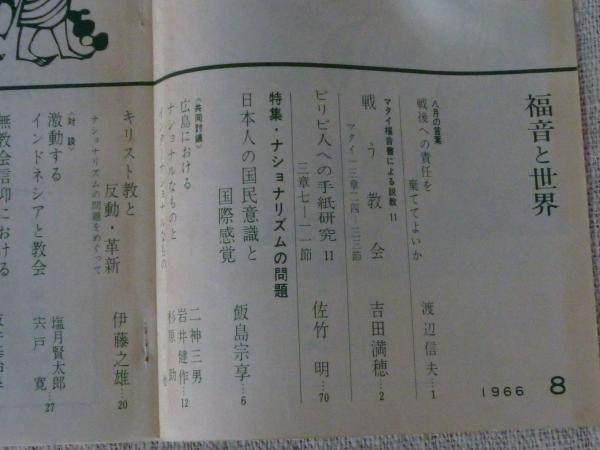 福音と世界
1966 8
八月の言葉
戦後への責任を
棄ててよいか
渡辺信夫…1
マタイ福音書による説教11
戦う教会
マタイ一三章二四―三三節
吉田満穂…2
ピリピ人への手紙研究11
三章七―一一節
佐竹明…70
特集・ナショナリズムの問題
日本人の国民意識と
国際感覚
飯島宗享…6
〈共同討議〉
広島における
ナショナルなものと
インターナショナルなもの
二神三男
岩井健作…12
杉原助
他
キリスト教と
反動・革新
ナショナリズムの問題をめぐって
伊藤之雄…20
〈対談〉
激動する
インドネシアと教会
塩月賢太郎
宍戸寛…27
無教会信仰における